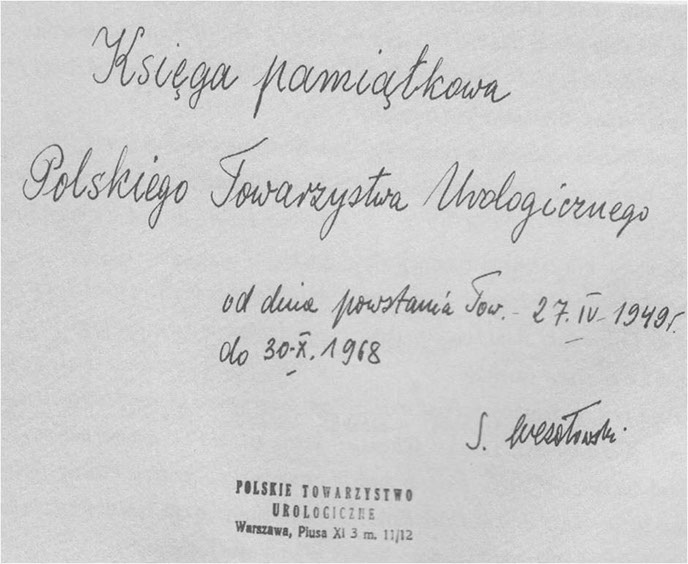 Księga pamiątkowa
Polskiego Towarzystwa Urologicznego
od dnia powstania Tow. - 27.IV-1949r.
do 30-X.1968
S. Wesołowski
POLSKIE TOWARZYSTWO
UROLOGICZNE
Warszawa, Piusa XI 3 m. 11/12